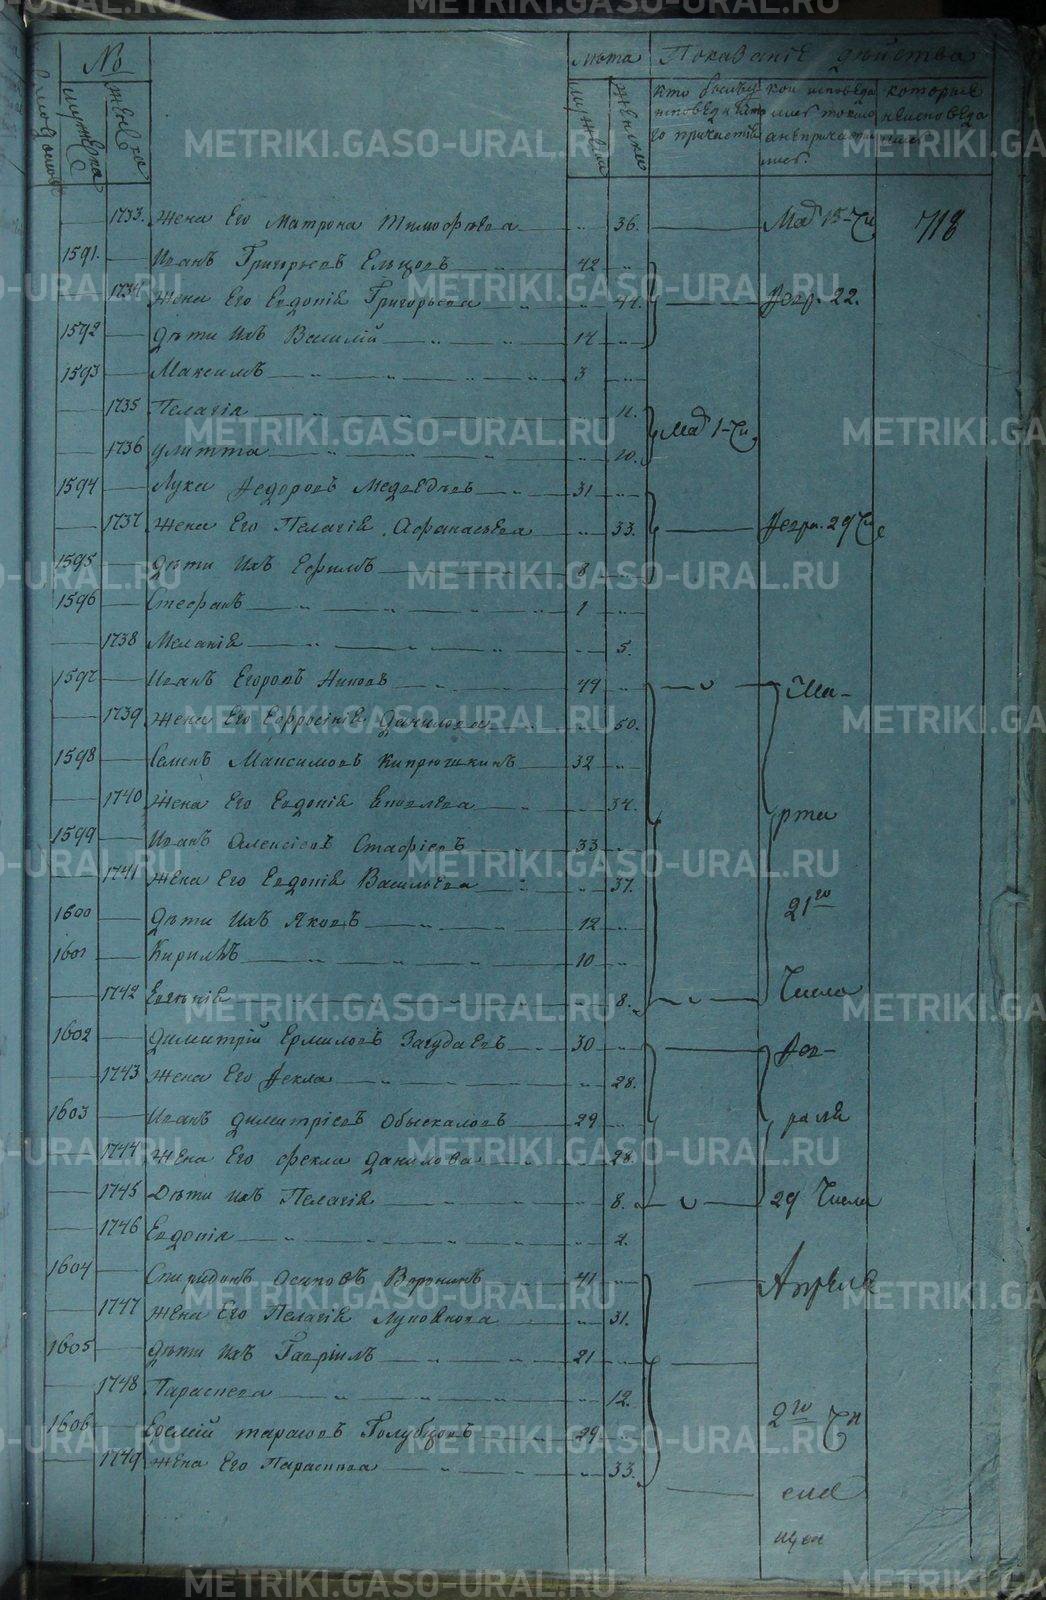 № лѣта Показаніе дѣйства
мужеска женска мужеск женски
кто былъ у исповеди и святаго причастия
кои исповедались токмо а не причастились
которые неисповедались
718
1733. Жена Его Матрона Тимофѣева 36. Мар 15-Чи
1591. Иванъ Григорьевъ Ельцовъ 42
1734 Жена Его Евдокія Григорьева 41. Февр. 22.
1592 Дѣти Ихъ Василій 14
1593 Максимъ 3
1735 Пелагія 11.
Мар 1-Чи
1736 Улитта 10.
1594 Лука Федоровъ Медведевъ 31
1737 Жена Его Пелагія Афанасьева 33. Февр. 29 Чи
1595 Дѣти Ихъ Ефимъ 8
1596 Стефанъ 1
1738 Меланія 5.
1597 Иванъ Егоровъ 49 Ма-
1739 Жена Его Ефросінія Данилова 50.
1598 Семенъ Максимовъ Кипрюшкинъ 32
1740 Жена Его Евдокія 34. рта
1599 Иванъ Алексіевъ Стафіевъ 33
1741 Жена Его Евдокія Васильева 37.
21го
1600 Дѣти Ихъ Яковъ 12
1601 Кирилъ 10
1742 Евгенія 8. Числа
1602 Димитрій Ермиловъ Загудаевъ 30 Фев-
1743 Жена Его Фекла 28.
1603 Иванъ Димитріевъ Обыскаловъ 29 раля
1744 Жена Его Фекла Данилова 28.
1745 Дѣти ихъ Пелагія 8. 29 Числа
1746 Евдокія 2.
1604 Спиридонъ Осиповъ Воронинъ 41 Апреля
1747 Жена Его Пелагія 31.
1605 Дѣти Ихъ Гавріилъ 21
1748 Параскева 12.
2го Чи
1606 Ефтій Тарасовъ Голубцовъ 29
1749 Жена Его Параскева 33.
METRIKI.GASO-URAL.RU